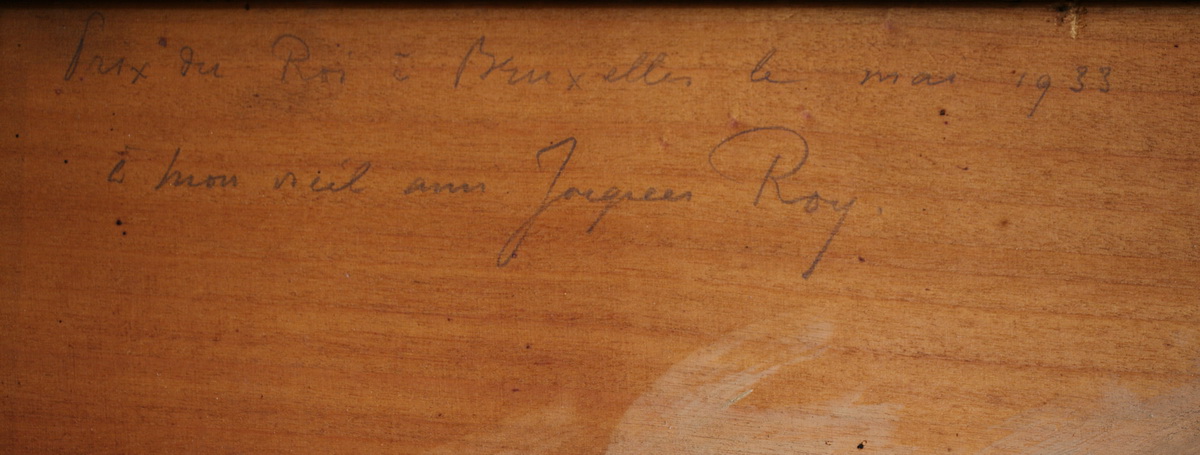 Prix du Roi à Bruxelles le mai 1933
à mon vieil ami Jorguees Roy.